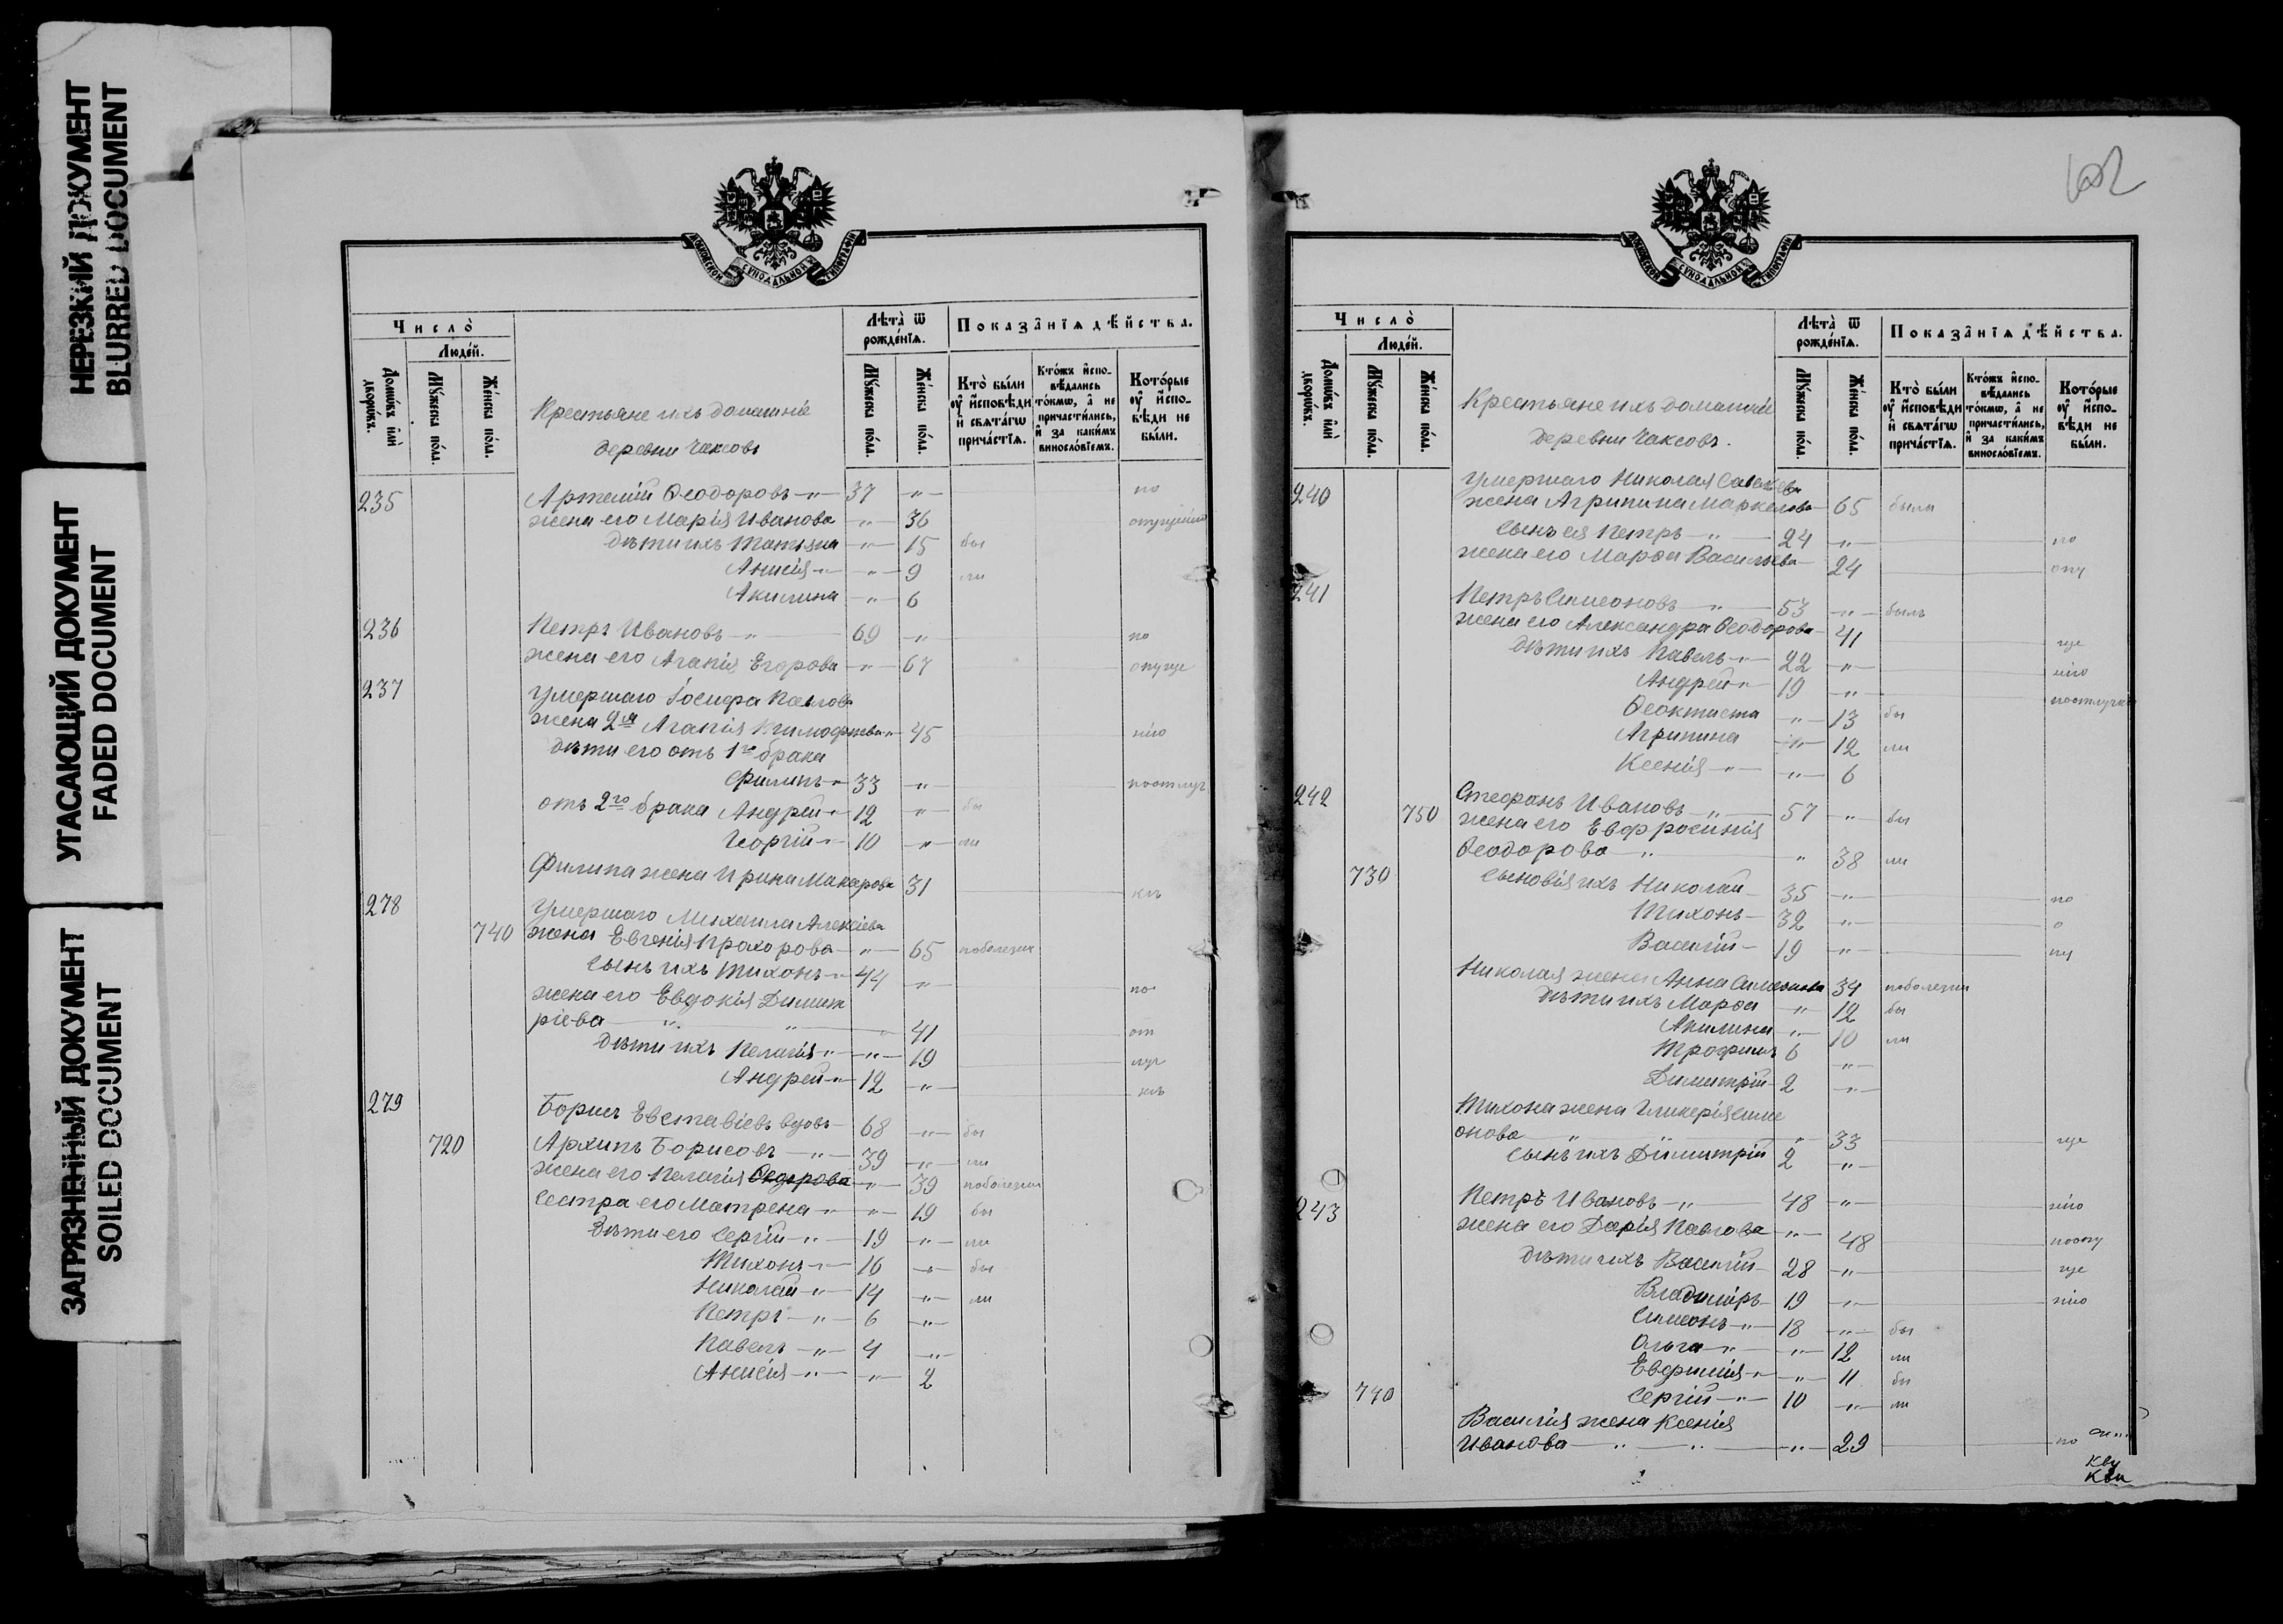 НЕРЕЗКИЙ ДОКУМЕНТ
BLURRED DOCUMENT
УГАСАЮЩИЙ ДОКУМЕНТ
FADED DOCUMENT
ЗАГРЯЗНЕННЫЙ ДОКУМЕНТ
SOILED DOCUMENT
МОСКОВСКОЙ СѴНОДАЛЬНОЙ ТИПОГРАФІИ
Число̀
Людей.
Домѡвъ и҆лѝ дворѡвъ.
Мꙋжеска полꙋ.
Женска полꙋ.
Крестьяне ихъ домашніе
деревни Чаксовъ
Лѣта̀ ѿ рожде́нїѧ.
Мꙋжеска полꙋ.
Женска полꙋ.
Показа̑нїѧ дѣ́йства.
Кто̀ бы́ли ᲂу҆ и҆сповѣди и҆ свѧта́гѡ прича́стїѧ.
Кто́жъ и҆спо-вѣдались то́кмѡ, а҆ не причасти́лись, и҆ за каки́мъ винослові́емъ.
Кото́рые ᲂу҆ и҆спо-вѣди не бы́ли.
235 Артемій Ѳеодоровъ 37 по
жена его Марія Иванова 36
дѣти ихъ Татіяна 15 бы
Анисія 9 ли
Акилина 6
236 Петръ Ивановъ 69 по
жена его Агапія Егорова 67
237 Умершаго Іосифа Павлова
жена 2я Агапія Тимофеева 45 нію
дѣти его отъ 1го брака
Филипъ 33
отъ 2го брака Андрей 12 бы
Георгій 10 ли
Филипа жена Ирина Макарова 31
278 Умершаго Михаила Алексіева
740 жена Евгенія Прохорова 65 по болезни
сынъ ихъ Тихонъ 44 по
жена его Евдокія Димит
ріева 41 от
дѣти ихъ Пелагія 19 луч
Андрей 12 къ
279 Борисъ Евстафіевъ вдовъ 68 бы
720 Архипъ Борисовъ 39 ли
жена его Пелагія Ѳедорова 39 по болезни
сестра его Матрена 19 бы
дѣти его Сергій 19 ли
Тихонъ 16 бы
Николай 14 ли
Петръ 6
Павелъ 4
Анисія 2
МОСКОВСКОЙ СѴНОДАЛЬНОЙ ТИПОГРАФІИ
Число̀
Людей.
Домѡвъ и҆лѝ дворѡвъ.
Мꙋжеска полꙋ.
Женска полꙋ.
Крестьяне ихъ домашніе
деревни Чаксовъ.
Лѣта̀ ѿ рожде́нїѧ.
Мꙋжеска полꙋ.
Женска полꙋ.
Показа̑нїѧ дѣ́йства.
Кто̀ бы́ли ᲂу҆ и҆сповѣди и҆ свѧта́гѡ прича́стїѧ.
Кто́жъ и҆спо-вѣдались то́кмѡ, а҆ не причасти́лись, и҆ за каки́мъ винослові́емъ.
Кото́рые ᲂу҆ и҆спо-вѣди не бы́ли.
240 Умершаго Николая
жена Агрипина Маркелова 65 была
сынъ ея Петръ 24 по
жена его Марѳа Васильева 24 опу
241 Петръ Симеоновъ 53 былъ
жена его Александра Ѳеодорова 41 ще
дѣти ихъ Павелъ 22 нію
Андрей 19
Ѳеоктиста 13 бы
Агрипина 12 ли
Ксенія 6
242 Стефанъ Ивановъ 57 бы
750 жена его Евфросинія
Ѳеодорова 38 ли
730 сыновія ихъ Николай 35 по
Тихонъ 32 о
Василій 19 пу
Николая жена Анна Симеонова 34 по болезни
дѣти ихъ Марѳа 12 бы
Акилина 10 ли
Трофимъ 6
Димитрій 2
Тихона жена Гликерія Симе
онова 33 ще
сынъ ихъ Димитрій 2
243 Петръ Ивановъ 48 нію
жена его Дарія Павлова 48 по опу
дѣти ихъ Василій 28 ще
Владиміръ 19 нію
Симеонъ 18 бы
Ольга 12 ли
Евфимія 11 бы
740 Сергій 10 ли
Василія жена Ксенія
Иванова 29 по